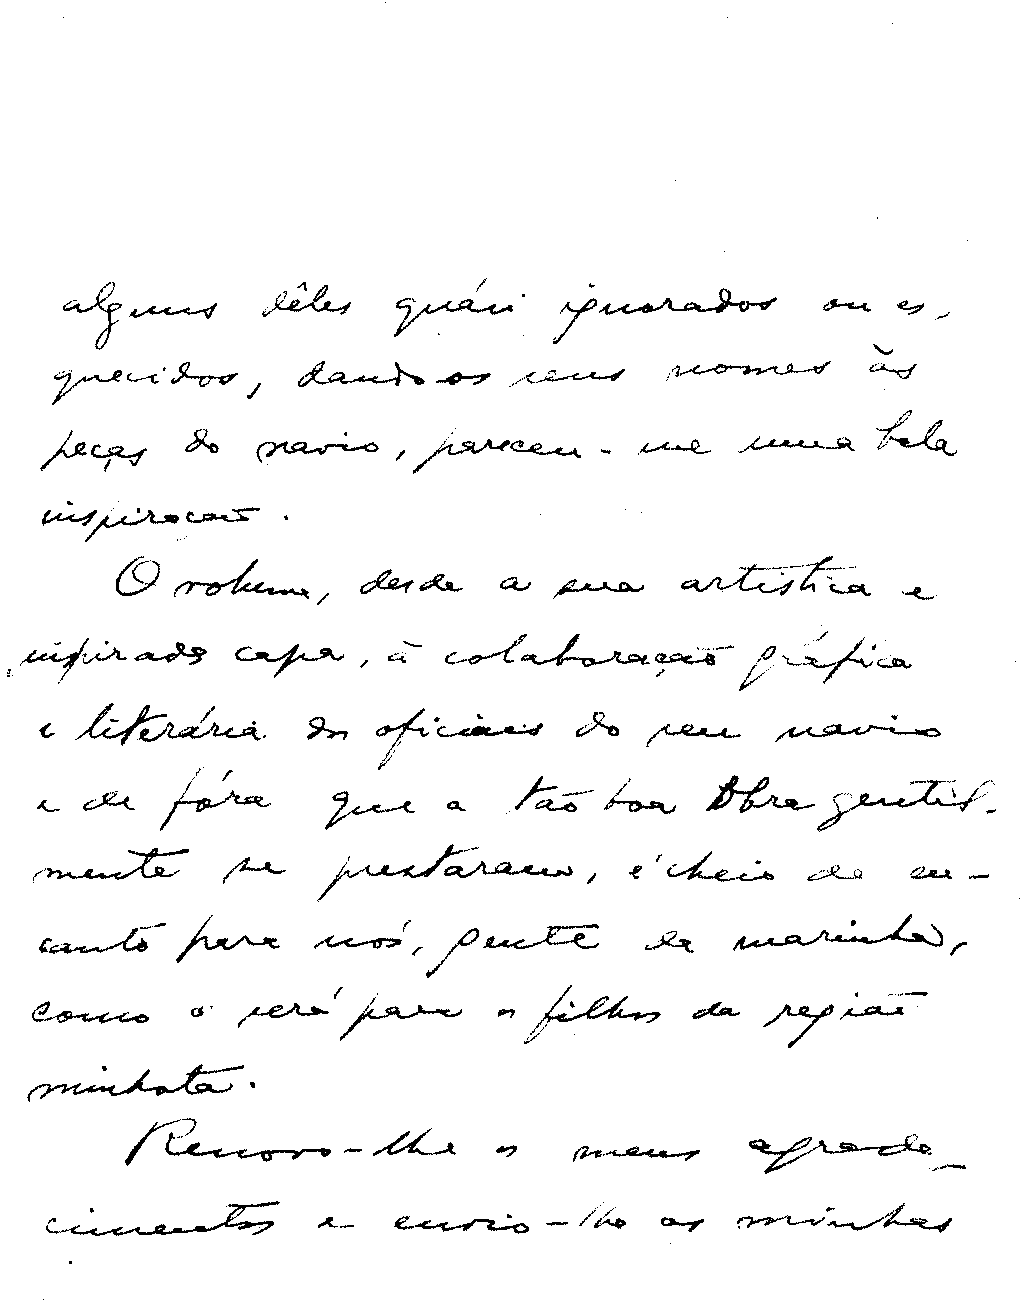 alguns dêles quási ignorados ou es-
quecidos, dando os seus nomes às
peças do navio, pareceu-me uma bela
inspiração.
O volume, desde a sua artistica e
inspirada capa, à colaboração gráfica
e literária dos oficiais do seu navio
e de fóra que a tão boa Obra gentil-
mente se prestaram, é cheio de en-
canto para nós, gente da marinha,
como o será para os filhos da região
minhota.
Renovo-lhe os meus agrade-
cimentos e envio-lhe as minhas